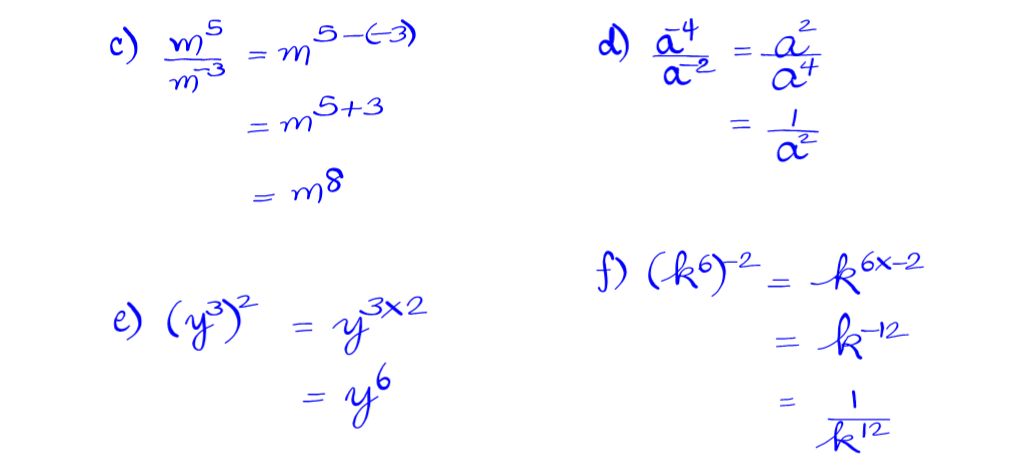 c) m^5/m^-3 = m^5-(-3)
= m^5+3
= m^8
d) a^-4/a^-2 = a^2/a^4
= 1/a^2
e) (y^3)^2 = y^3×2
= y^6
f) (k^6)^-2 = k^6×-2
= k^-12
= 1/k^12